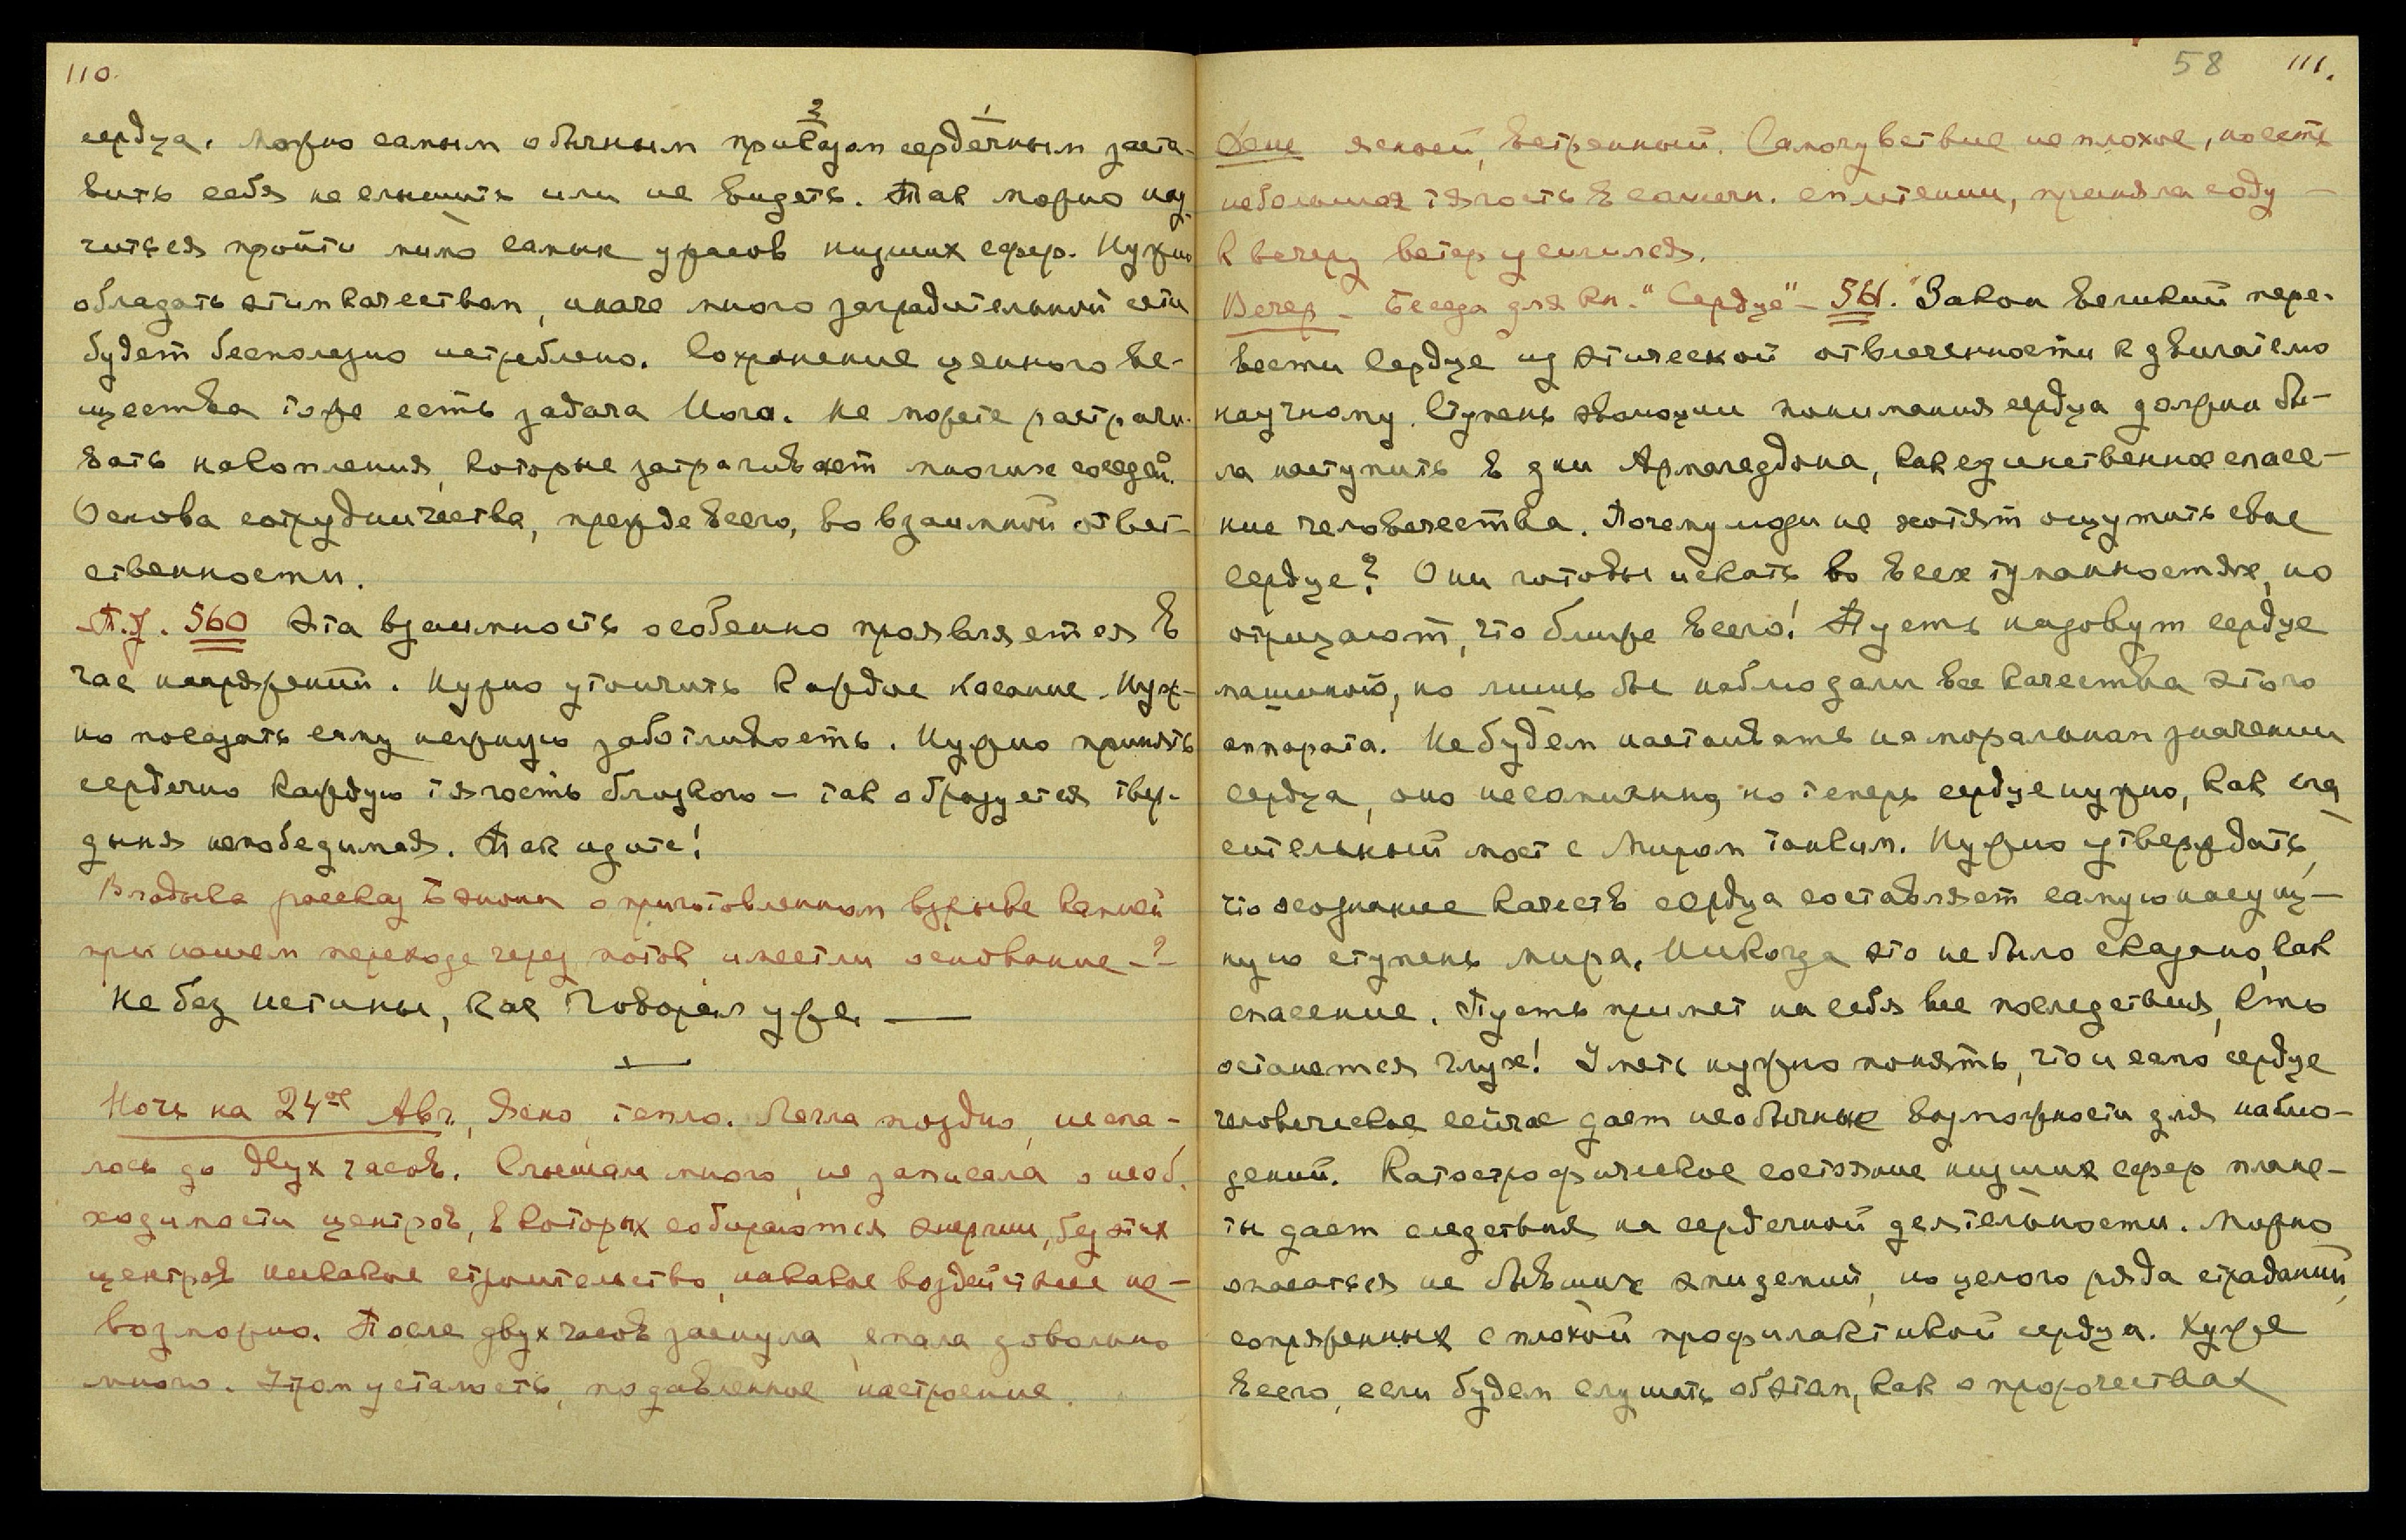 110.
2 1
сердца. Можно самым обычным приказом сердечным заста-
вить себя не слышать или не видеть. Так можно нау-
читься пройти мимо самых ужасов низших сфер. Нужно
обладать этим качеством, иначе много заградительной сети
будет бесполезно истреблено. Сохранение ценного ве-
щества тоже есть задача Йога. Не можете растрачи-
вать накопления, которые затрагивает многих соседей.
Основа сотрудничества, прежде всего, во взаимной ответ-
ственности.
П.У. 560 Эта взаимность особенно проявляется в
час напряжений. Нужно утончить каждое касание. Нуж-
но посадить ему нежную заботливость. Нужно принять
сердечно каждую тягость близкого – так образуется твер-
дыня непобедимая. Так идите!
Владыка рассказ Бэнона о приготовленном взрыве камней
при нашем переходе через поток имеет ли основание –?–
Не без истины, как Говорил уже. —
—
Ночь на 24ое Авг., Ясно, тепло. Легла поздно, не спа-
лось до двух часов. Слышала много, не записала о необ.
ходимости центров, в которых собираются энергии, без этих
центров никакое строительство, никакое воздействие не-
возможно. После двух часов заснула, спала довольно
много. Утром усталость, подавленное настроение.
58 111.
День ясный, ветренный. Самочувствие не плохое, но есть
небольшая тягость в солнечн. сплетении, приняла соду –
К вечеру ветер усилился.
Вечер – Беседа для кн. "Сердце" – 561. "Закон великий пере-
вести Сердце из этической отвлеченности к двигателю
научному. Ступень эволюции понимания сердца должна бы-
ла наступить в дни Армагеддона, как единственное спасе-
ние человечества. Почему люди не хотят ощутить свое
сердце? Они готовы искать во всех туманностях, но
отрицают, что ближе всего! Пусть назовут сердце
машиной, но лишь бы наблюдали все качества этого
аппарата. Не будем настаивать на моральном значении
сердца, оно несомненно, но теперь сердце нужно, как спа-
сительный мост с Миром тонким. Нужно утверждать,
что осознание качеств сердца составляет самую насущ-
ную ступень мира. Никогда это не было сказано, как
спасение. Пусть примет на себя все последствия, кто
останется глух! Уметь нужно понять, что и само сердце
человеческое сейчас дает необычные возможности для наблю-
дений. Катастрофическое состояние низших сфер плане-
ты дает следствия на сердечной деятельности. Можно
опасаться не бывших эпидемий, но целого ряда страданий,
сопряженных с плохой профилактикой сердца. Хуже
всего, если будем слушать об этом, как о пророчествах